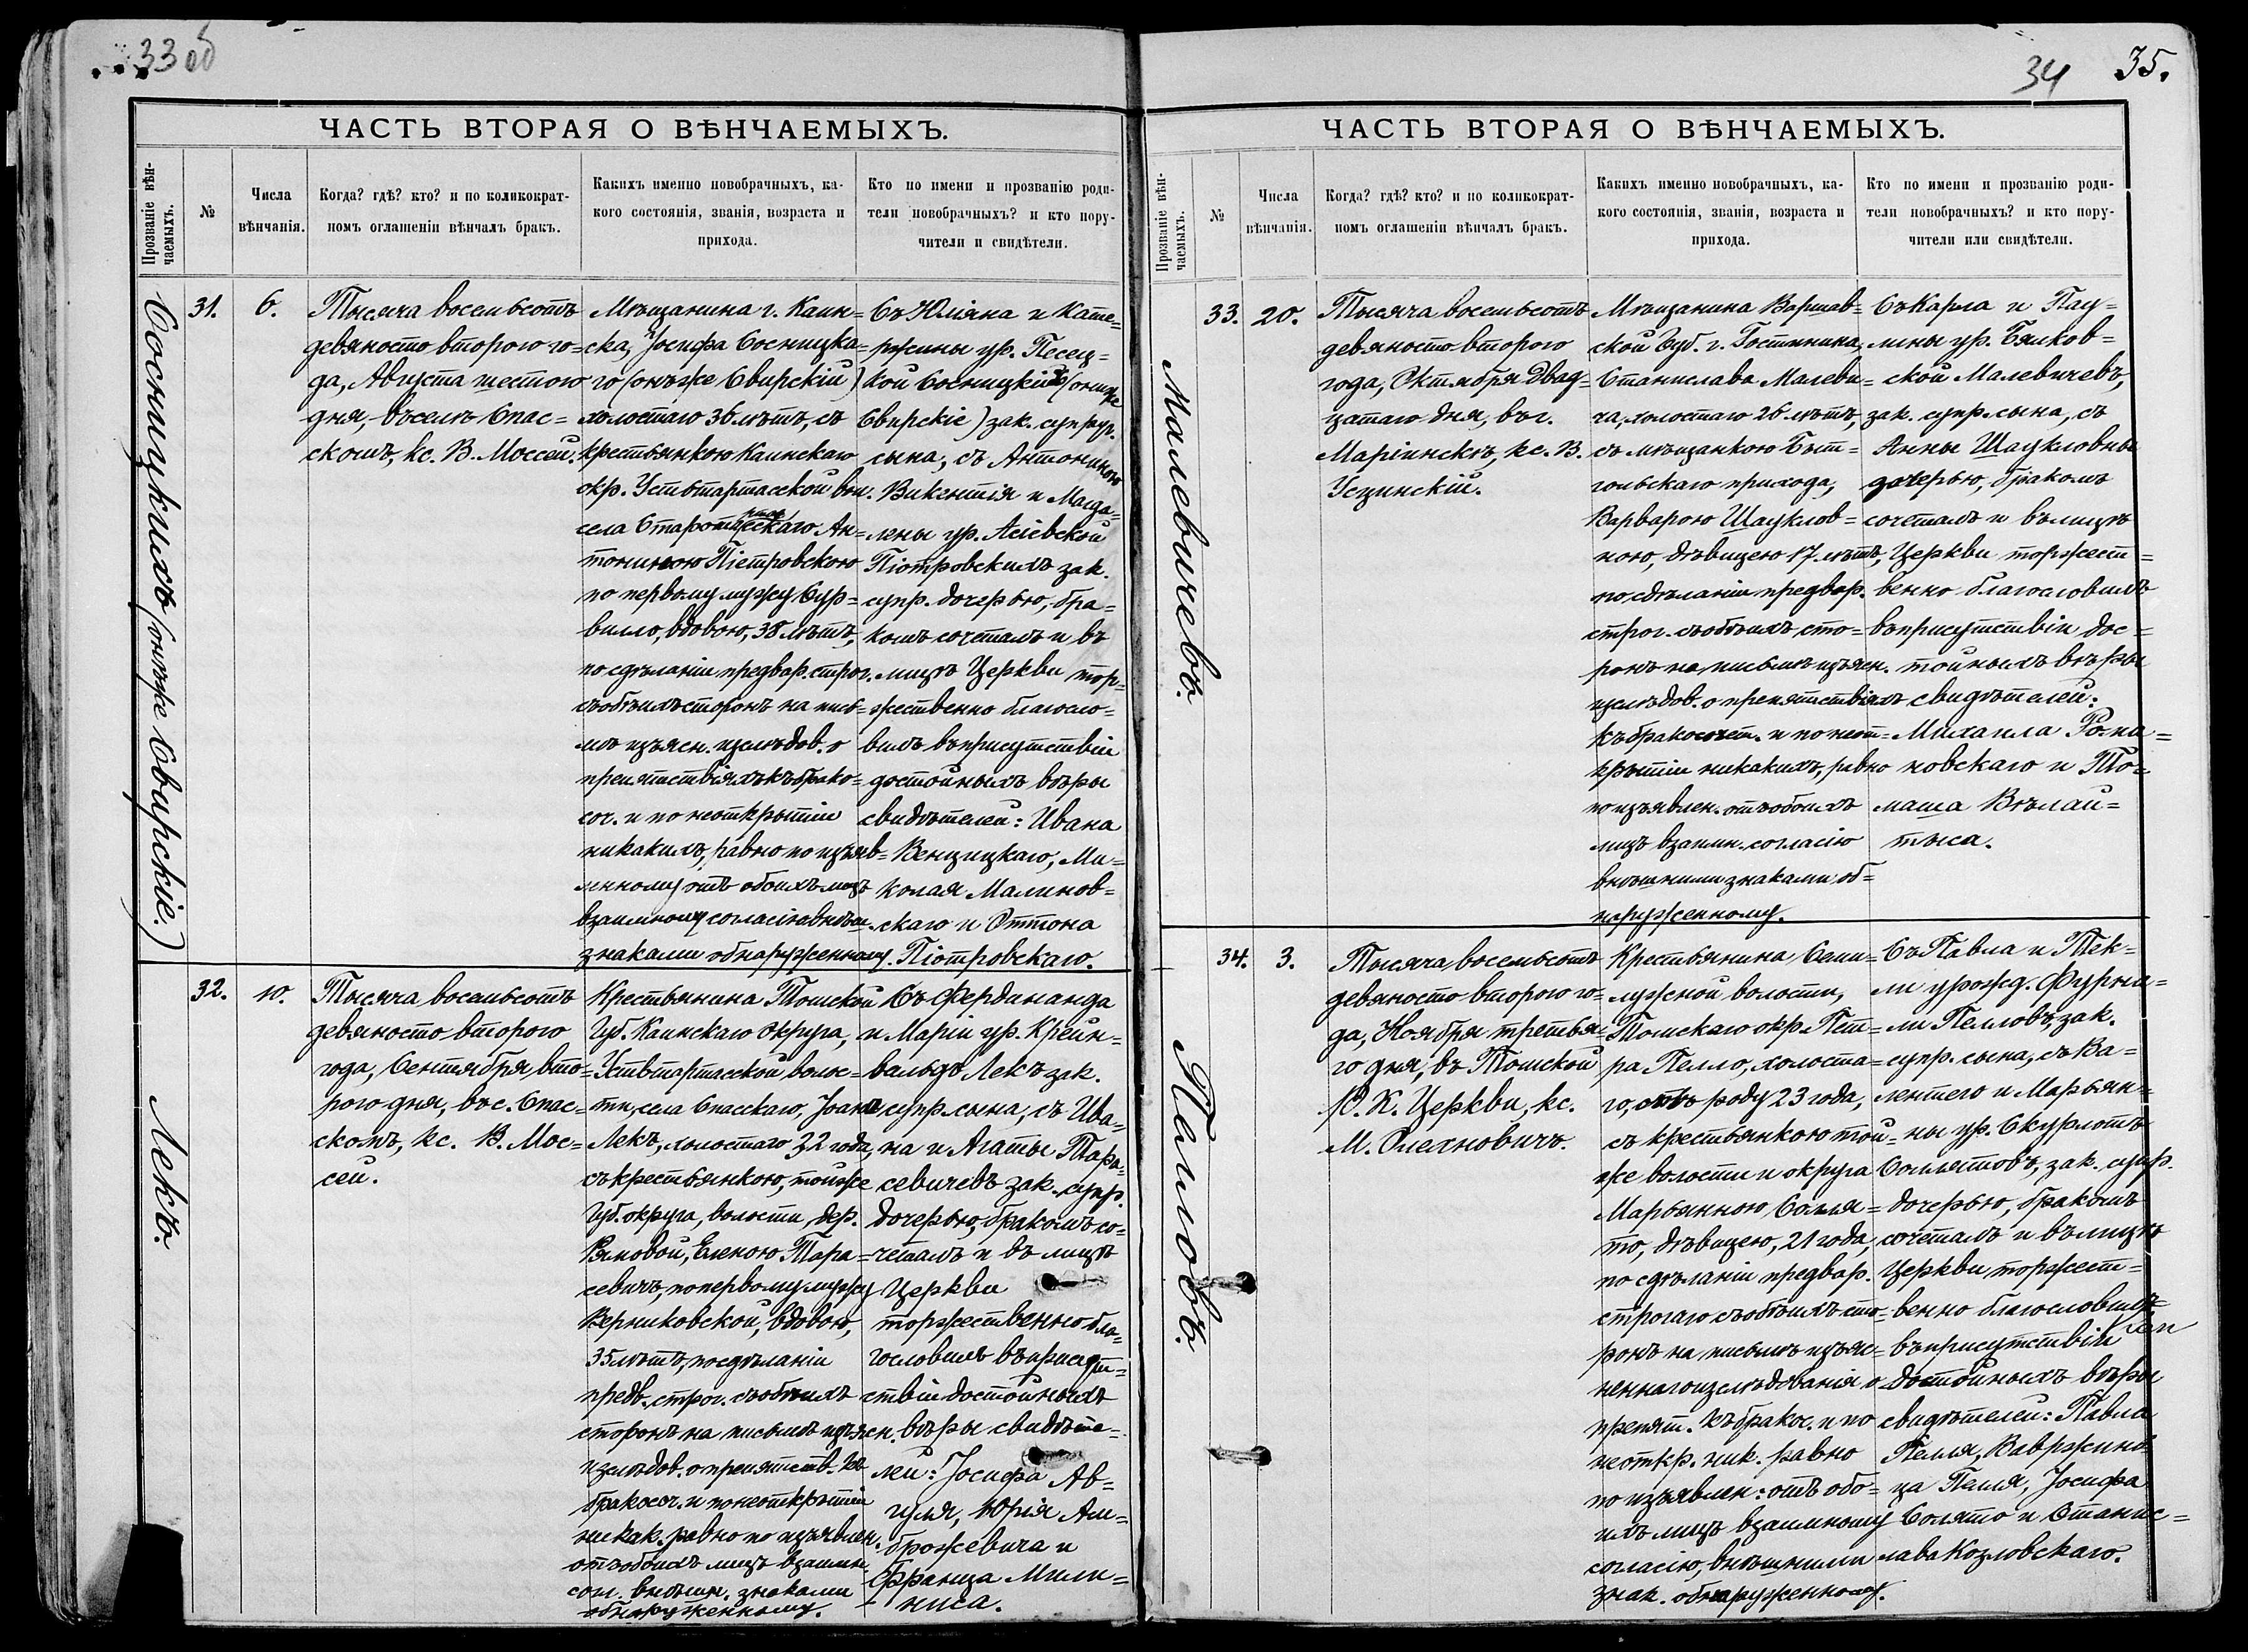 33 об
ЧАСТЬ ВТОРАЯ О ВѢНЧАЕМЫХЪ.
Прозваніе вѣн-
чаемыхъ.
№
Числа
вѣнчанія.
Когда? гдѣ? кто? и по коликократ-
номъ оглашеніи вѣнчалъ бракъ.
Какихъ именно новобрачныхъ, ка-
кого состоянія, званія, возраста и
прихода.
Кто по имени и прозванію роди-
тели новобрачныхъ? и кто пору-
чители и свидѣтели.
Сосницкихъ (онъ же Свирскіе.)
31.
6.
Тысяча восемьсотъ
девяносто второго го=
да, Августа шестого
дня, въ селѣ Спас=
скомъ, кс. В. Моссей.
Мѣщанина г. Каин=
ска, Іосифа Сосницка=
го (онъ же Свирскій)
холостаго 36 лѣтъ, съ
крестьянкою Каинскаго
окр. Устьтартасской вол.
села Старо Ан=
тониною Піетровскою
по первому мужу Сур=
вилло, вдовою, 38 лѣтъ,
по сдѣланіи предвар. строг.
съ обѣихъ сторонъ на пись=
мѣ изъясн. изслѣдов. о
препятствіяхъ къ брако=
соч. и по неоткрытіи
никакихъ, равно по изъяв=
ленному отъ обоихъ лицъ
взаимному согласію внѣш.
знаками обнаруженному.
Съ Юліяна и Кате=
ржины ур. Песец=
кой Сосницкихъ (они же
Свирскіе) зак. супруг.
сына, съ Антониною
Викентія и Магда=
лены ур. Асіевской
Піотровскихъ зак.
супр. дочерью, бра=
комъ сочеталъ и въ
лицѣ Церкви тор=
жественно благосло=
вилъ въ присутствіи
достойныхъ вѣры
свидѣтелей: Ивана
Венцицкаго, Ми=
колая Малинов=
скаго и Оттона
Піотровскаго.
Лекъ.
32.
10.
Тысяча восемьсотъ
девяносто второго
года, Сентября вто=
рого дня, въ с. Спас=
скомъ, кс. В. Мос=
сей.
Крестьянина Томской
Губ. Каинскаго Округа,
Устьтартасской, волос=
ти, села Спасскаго, Іоан
Лекъ, холостаго 32 года,
съ крестьянкою, той же
Губ. округа, волости, дер.
Рямовой, Еленою Тара=
севичъ, по первому мужу
Верниковской, вдовою,
35 лѣтъ, по сдѣланіи
предв. строг. съ обѣихъ
сторонъ на письмѣ изъясн.
изслѣдов. о препятств. къ
бракосоч. и по неоткрытіи
никак. равно по изъявлен.
отъ обоихъ лицъ взаимн.
согл. внѣшн. знаками
обнаруженному.
Съ Фердинанда
и Маріи ур. Крейн=
вальдъ Лекъ зак.
супр. сына, съ Ива=
на и Агаты Тара=
севичевъ зак. супр.
дочерью, бракомъ со=
четалъ и въ лицѣ
Церкви
торжественно бла=
гословилъ въ присут=
ствіи достойныхъ
вѣры свидѣте=
лей: Іосифа Ав=
гуля, Юрія Ам=
брожевича и
Франца Мили=
ниса.
34
35.
ЧАСТЬ ВТОРАЯ О ВѢНЧАЕМЫХЪ.
Прозваніе вѣн-
чаемыхъ.
№
Числа
вѣнчанія.
Когда? гдѣ? кто? и по коликократ-
номъ оглашеніи вѣнчалъ бракъ.
Какихъ именно новобрачныхъ, ка-
кого состоянія, званія, возраста и
прихода.
Кто по имени и прозванію роди-
тели новобрачныхъ? и кто пору-
чители или свидѣтели.
Малевичевъ.
33.
20.
Тысяча восемьсотъ
девяносто второго
года, Октября двад=
цатаго дня, въ г.
Маріинскѣ, кс. В.
Усцинскій.
Мѣщанина Варшав=
ской Губ. г. Гостынина,
Станислава Малеви=
ча, холостаго 26 лѣтъ,
съ мѣщанкою Быт=
гоньскаго прихода,
Варварою Шауклов=
ною, дѣвицею 17 лѣтъ,
по сдѣланіи предвар.
строг. съ обѣихъ сто=
ронъ на письмѣ изъясн.
изслѣдов. о препятствіяхъ
къ бракосочет. и по неот=
крытіи никакихъ, равно
по изъявлен. отъ обоихъ
лицъ взаимн. согласію
внѣшними знаками об=
наруженному.
Съ Карла и Пау=
лины ур. Бялков=
ской Малевичевъ,
зак. супр. сына, съ
Анны Шаукловны
дочерью, бракомъ
сочеталъ и въ лицѣ
Церкви торжест=
венно благословилъ
въ присутствіи дос=
тойныхъ вѣры
свидѣтелей:
Михаила Рома=
новскаго и То=
маша Вѣлай=
тыса.
Пелловъ.
34.
3.
Тысяча восемьсотъ
девяносто второго го=
да, Ноября третья=
го дня, въ Томской
Р. К. Церкви, кс.
М. Олехновичъ.
Крестьянина Семи=
лужной волости,
Томскаго окр. Пет=
ра Пелло, холоста=
го, отъ роду 23 года,
съ крестьянкою той
же волости и округа
Марьянною Соля=
то, дѣвицею, 21 года,
по сдѣланіи предвар.
строгаго съ обѣихъ сто=
ронъ на письмѣ изъяс=
неннаго изслѣдованія о
препят. къ бракос. и по
неоткр. ник. равно
по изъявлен: отъ обо=
ихъ лицъ взаимному
согласію, внѣшними
знак. обнаруженному.
Съ Павла и Тек=
ли урожд. Фурма=
ли Пелловъ, зак.
супр. сына, съ Ва=
лентего и Марьян=
ны ур. Скурлотъ
Солятовъ, зак. супр.
дочерью, бракомъ
сочеталъ и въ лицѣ
Церкви, торжест=
венно благословилъ
въ присутствіи
достойныхъ вѣры
свидѣтелей: Павла
Пелля, Вавржинь=
ца Пелля, Іосифа
Солято и Станис=
лава Козловскаго.